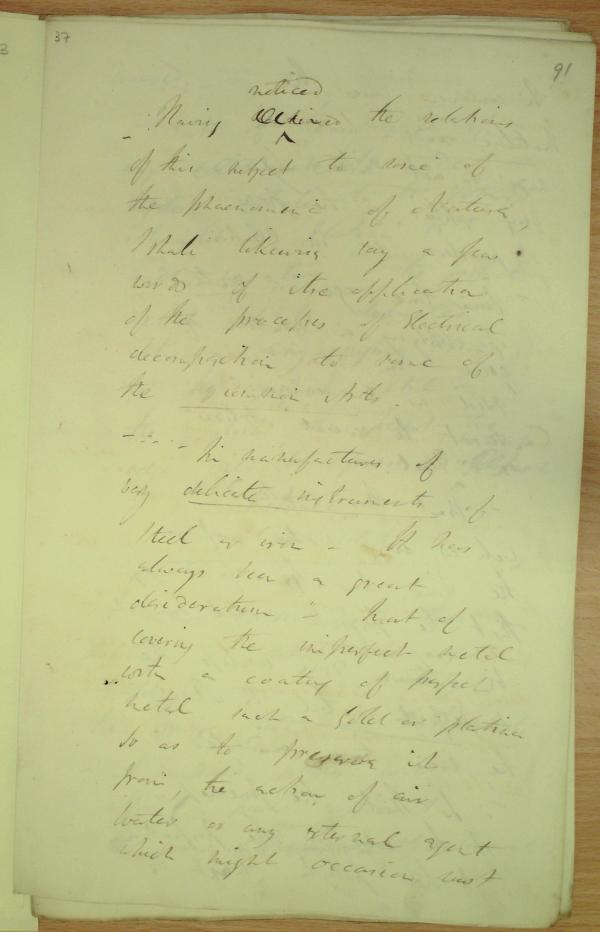 37
91
noticed
- Having the relations
of this subject to some of
the phaenomena of Nature,
I shall likewise say a few
words of its application
of the processes of Electrical
decomposition to some of
the Arts.
- In manufactures of
very delicate instruments of
Steel or iron - It has
always been a great
desideratum that of
covering the imperfect metal
with a coating of perfect
metal such a Gold or platina
so as to preserve it
from, the action of air
water or any external agent
which might occasion rust